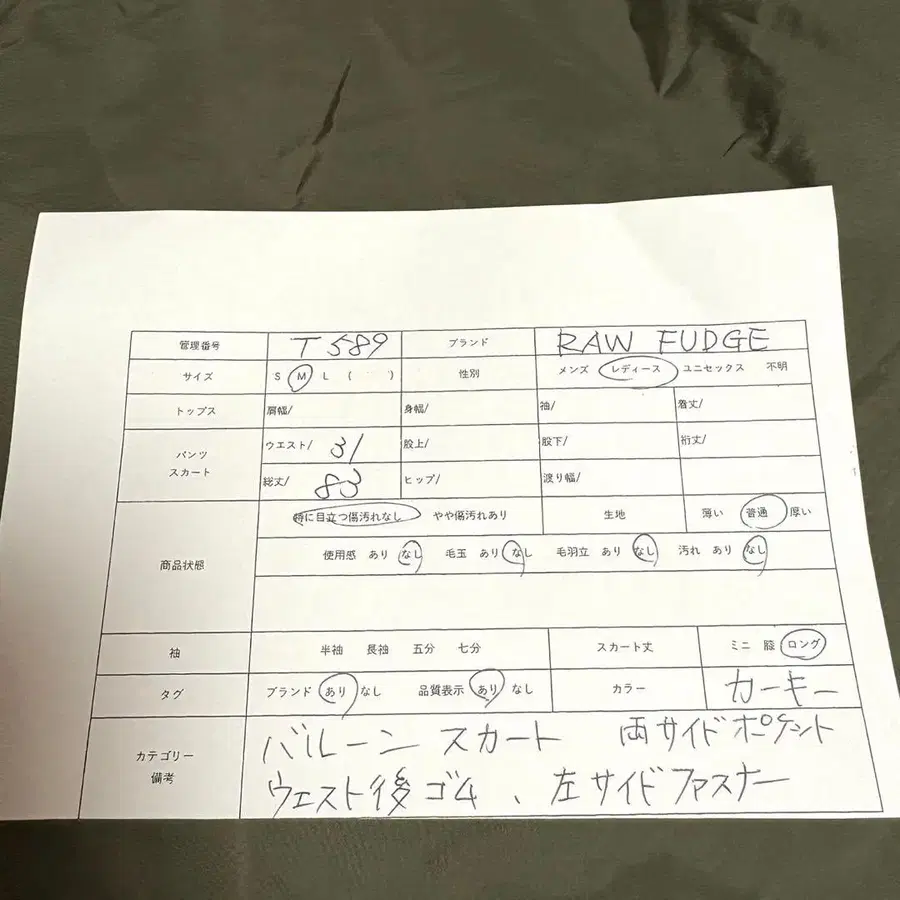 管理番号 T 589 ブランド RAW FUDGE
サイズ S M L ( ) 性別 メンズ レディース ユニセックス 不明
トップス 肩幅/ 身幅/ 袖/ 着丈/
パンツ ウエスト/ 31 股上/ 股下/ 裄丈/
スカート 総丈/ 83 ヒップ/ 渡り幅/
特に目立つ傷汚れなし やや傷汚れあり 生地 薄い 普通 厚い
商品状態 使用感 あり なし 毛玉 あり なし 毛羽立 あり なし 汚れ あり なし
袖 半袖 長袖 五分 七分 スカート丈 ミニ 膝 ロング
タグ ブランド あり なし 品質表示 あり なし カラー カーキー
カテゴリー バルーン スカート 両サイドポケット
備考 ウエスト後ゴム、左サイドファスナー